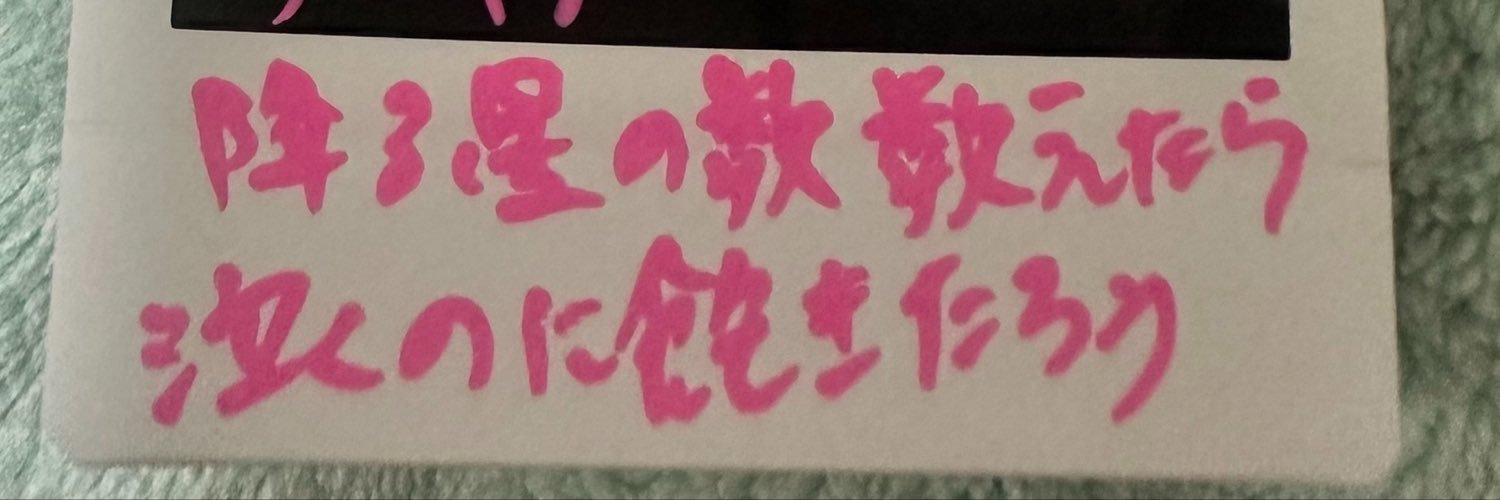 降る星の数数えたら
泣くのに飽きだろう